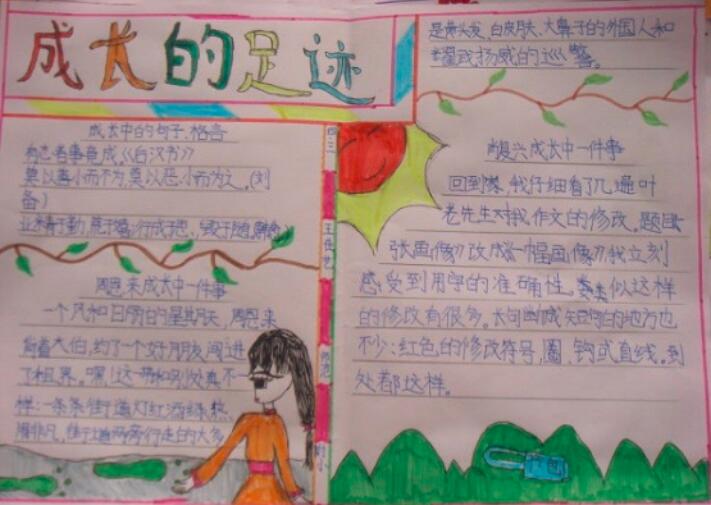 成长的足迹
成长中的句子、格言
有志者事竟成《后汉书》
莫以善小而不为,莫以恶小而为之。(刘
备)
业精于勤,荒于嬉;行成于思,毁于随。(韩愈)
周恩来成长中一件事
一个风和日丽的星期天,周恩来
背着大伯,约了一个好朋友闯进
了租界。嘿!这一带和别处真不一
样:一条条街道灯红酒绿,热
闹非凡,街道两旁行走的大多
四三
王
艺
师范
附小
是黄头发、白皮肤、大鼻子的外国人和
耀武扬威的巡警。
肖复兴成长中一件事
回到家,我仔细看了几遍叶
老先生对我作文的修改。题目《一
张画像》改成《一幅画像》,我立刻
感受到用字的准确性。类似这样
的修改有很多。长句断成短句的地方也
不少:红色的修改符号,圈、钩或直线。到
处都这样。